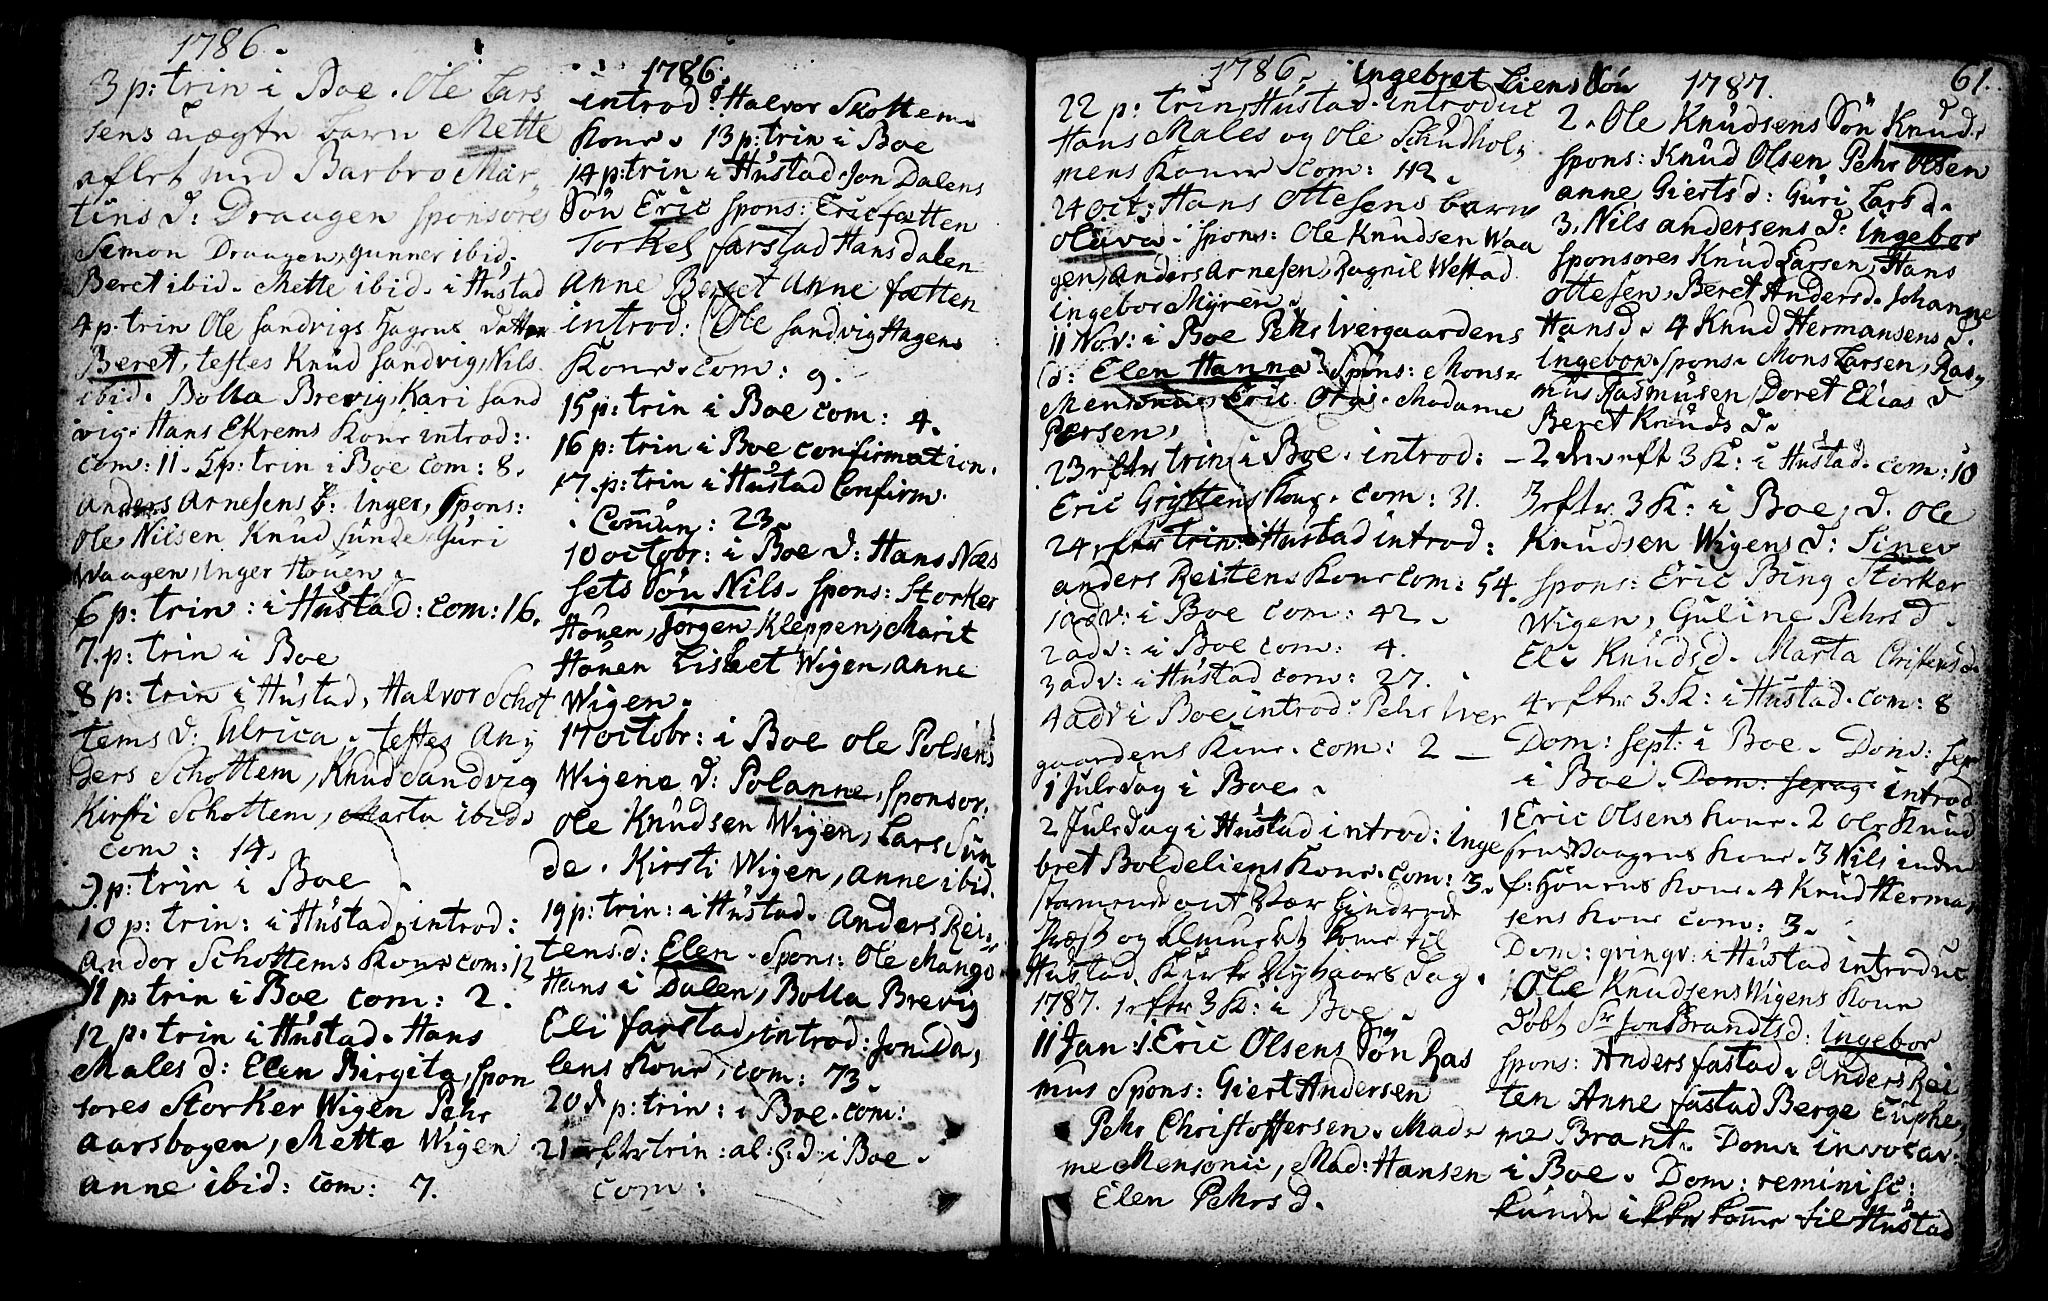 1786.
3 p: trin i Boe. Ole Lars
sens uægte barn Mette
aflet med Barbro Mar,
tins d: Draagen sponsores
Semon Draagen, gunner ibid.
Beret ibid. Mette ibid. i Hustad
4 p. trin Ole Sandvigs Hagens datter
Beret, testes Knud Sandvig, Nils
ibid. Bolla Brevig, Kari Sand
vig. Hans Ekrems Kone introd:
com: 11. 5 p: trin i Boe com: 8.
Anders Arnesens b: Inger, Spons:
Ole Nilsen Knud Sunde Guri
Waagen, Inger Houen.
6 p: trin: i Hustad: com: 16.
7. p: trin i Boe
8 p: trin i Hustad, Halvor Schot
tems d: Ulrica. testes An,
ders Schottem, Knud Sandvig
Kirsti Schottem, Marta ibid.
com: 14.
9. p: trin i Boe
10 p: trin: i Hustad, introd:
Andor Schottems Kone com: 12
11 p: trin i Boe com: 2.
12 p: trin i Hustad. Hans
Males d: Elen Birgita, spon
sores Storker Wigen Pehr
aarsbogen, Mette Wigen
anne ibid: com: 7.
1786.
introd: Halvor Skottems
Kone. 13 p: trin i Boe
14 p: trin i Hustad. Jon Dalens
Søn Eric spons: Eric fætten
Torkel farstad Hans dalen
Anne Beret Anne fætten
introd: Ole Sandvig Hagens
Kone. com: 9.
15 p: trin i Boe com: 4.
16 p: trin i Boe confirmation.
17. p: trin i Hustad Confirm.
Comun: 23
10 octobr: i Boe d: Hans Næs
sets Søn Nils. spons: Storker
Houen, Jørgen Kleppen, Marit
Houen Lisbet Wigen, anne
Wigen.
17 octobr: i Boe Ole Polsens
Wigene d: Polanne, sponsor.
Ole Knudsen Wigen, Lars Sun
de. Kirsti Wigen, anne ibid.
19 p: trin: i Hustad. Anders Rei,
tens d: Elen. Spons: Ole Mango
Hans i Dalen, Bolla Brevig
Eli farstad, introd: Jon Da,
lens Kone, com: 73.
20 d p: trin: i Boe. com:
21 efter trin: al: h: d: i Boe.
com:
1786. Ingebret Liens Søn
22 p: trin, Hustad. introduc
Hans Males og Ole Schudhol,
mens Koner com: 42.
24 oct: Hans Ottesens barn
Oliva. spons: Ole Knudsen Waa
gen, Anders Arnesen, Ragnil Westad
ingebor Myren.
11 Nov: i Boe Pehr Ivergaardens
d: Elen Hanna. Spons: Monsr
Mensonie, Eric Otis. Madame
Pærsen,
23 efter trin i Boe. introd:
Eric Gryttens Kone. com: 31.
24 efter trin: i Hustad introd:
anders Reitens Kone com: 54.
1 adv: i Boe com: 42.
2 adv: i Boe com: 4.
3 adv: i Hustad com: 27.
4 adv i Boe introd: Pehr Iver
gaardens Kone. com: 2 —
1 Juledag i Boe.
2 Juledag i Hustad introd: Inge
bret Boldeliens Kone. com: 3.
stormende ont Vær hindrede
Præst og Almuen at kome til
Hustad Kirke Nyaars dag.
1787. 1 efter 3 K: i Boe.
11 Jan: 1. Eric Olsens Søn Ras
mus Spons: Giert Andersen
Pehr Christoffersen. Mada
me Mensonie, Mad: Hansen
Elen Pehrs d.
1787. 61.
2. Ole Knudsens Søn Knud.
spons: Knud Olsen Pehr Olsen
anne Gierts d: Guri Lars d.
3. Nils Andersens d: Ingebor
sponsores Knud Larsen, Hans
Ottesen, Beret Anders d. Johanne
Hans d. 4 Knud Hermansens d.
Ingebor. spons. Mons Larsen, Ras,
mus Rasmusen, Doret Elias d
Beret Knuds d.
— 2 den eft 3 K: i Hustad. com: 10
3 efter 3 K: i Boe, d. Ole
Knudsen Wigens d: Sinev
spons: Eric Bing Storker
Wigen, Guline Pehrs d.
Eli Knuds d. Marta Christens d.
4 efter 3. K: i Hustad. com: 8
Dom: sept: i Boe. Dom: sex
i Boe. Dom: sexag: introd
1 Eric Olsens Kone. 2 Ole Knud
sens Waagens Kone. 3 Nils
Houens Kone. 4 Knud Herman
sens Kone com: 3.
Dom: qvinqv: i Hustad introduc
Ole Knudsens Wigens Kone
døbt Sr Jon Brandts d: Ingebor
spons: Anders fastad. Anders Rei
ten Anne fastad Berge Euphe,
me Brant. Dom: invocav:
i Boe. Dom: reminisc:
kunde ikke kome til Hustad